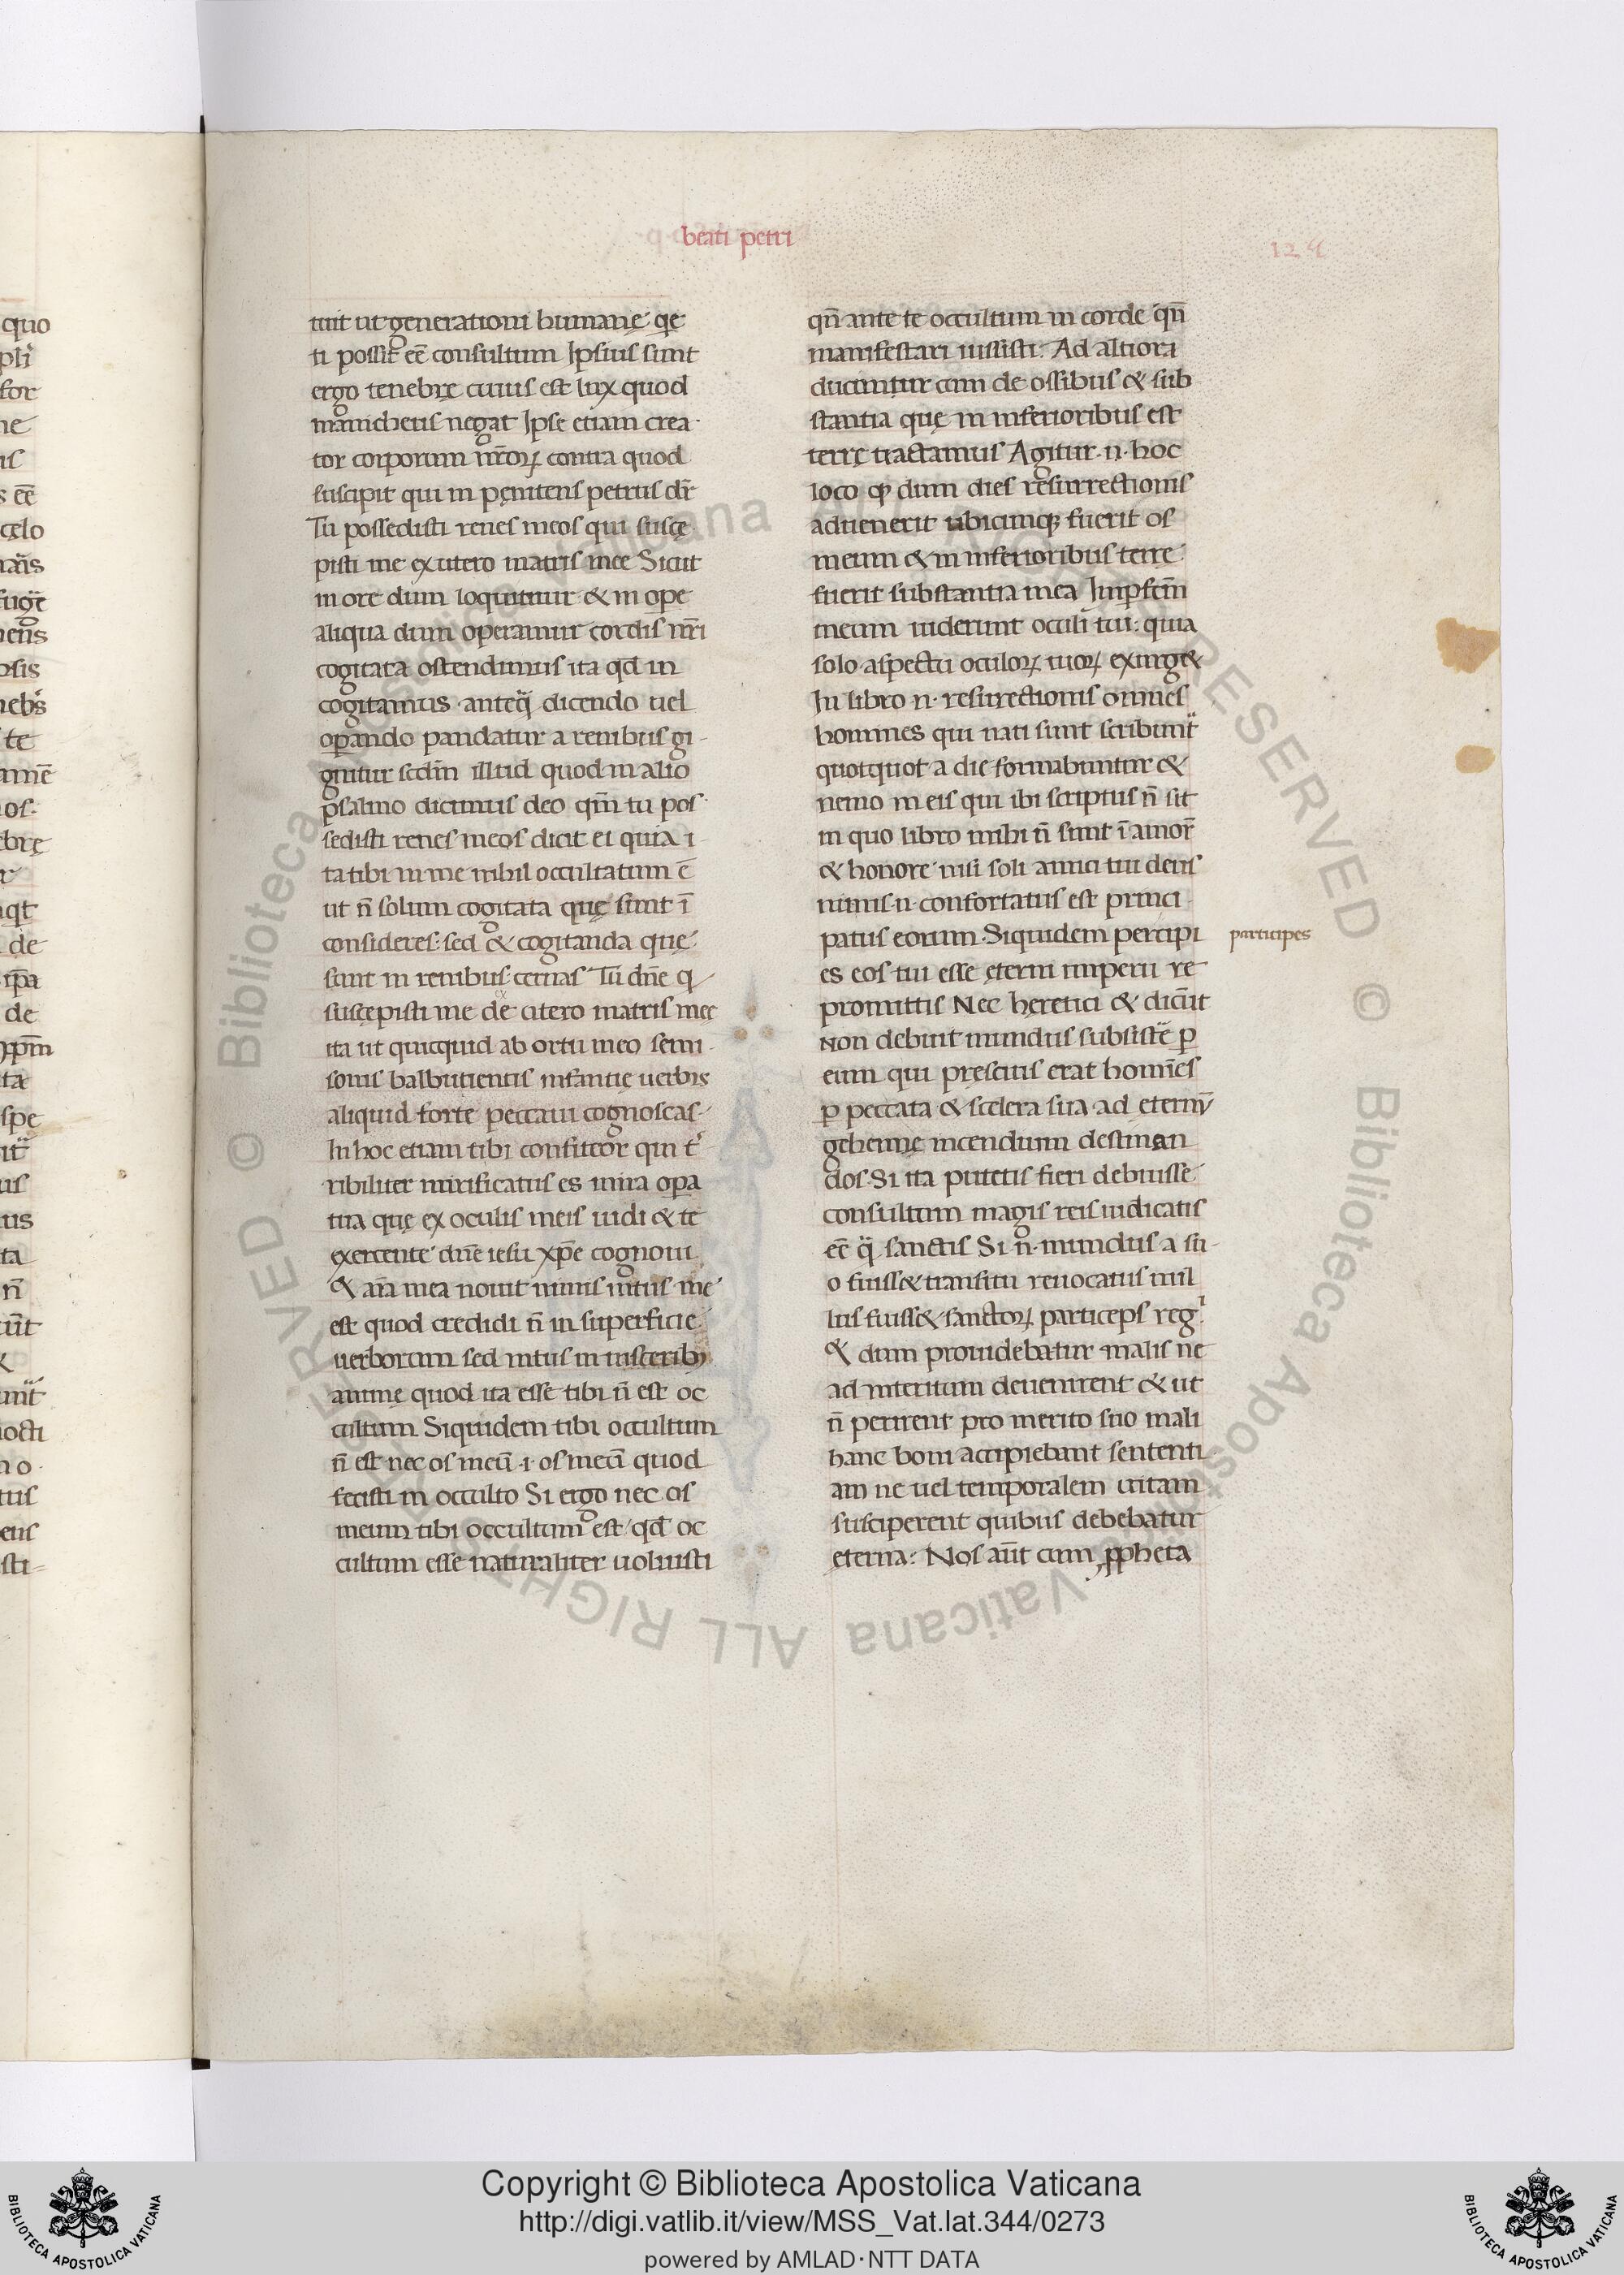 beati petri
129
tuit ut generationi humanę qͥe
ti possit eē consultum Ipsius sunt
ergo tenebrę cuius est lux quod
manicheus negat Ipse etiam crea
tor corporum nr̄oꝝ contra quod
suscipit qui in pęnitens petrus dr̄
Tu possedisti renes meos qui suscę
pisti me ex utero matris mee Sicut
in ore dum loquimur & in ope
aliqua dum operamur cordis nr̄i
cogitata ostendimus ita qd in
cogitamus antequā dicendo uel
oꝑando pandatur a renibus gi
gnitur sedm̄ illud quod in alio
psalmo dicimus deo qm̄ tu pos
sedisti renes meos dicit ei quia i
ta tibi in me nihil occultatum ē
ut n̄ solum cogitata quę sunt ī
consideres: sed & cogitanda quę
sunt in renibus cernas Tu dn̄e q
suscępisti me de utero matris mee
ita ut quicquid ab ortu meo semi
sonis balbutientis infantię uerbis
aliquid forte peccaui cognoscas
In hoc etiam tibi confiteor qm t
ribiliter mirificatus es mira oꝑa
tua quę ex oculis meis uidi & te
exercente dn̄e iesu xp̄e cognoui
& aīa mea nouit nimis intus me
est quod credidi n̄ in superficie
uerborum sed intus in uisceribꝫ
animę quod ita esse tibi n̄ est oc
cultum Siquidem tibi occultum
n̄ est nec os meū ·i· os meū quod
fecisti in occulto Si ergo nec os
meum tibi occultum est qd oc
cultum esse naturaliter uoluisti
qn̄ ante te occultum in corde qn̄
manifestari iussisti. Ad altiora
ducuntur cum de ossibus & sub
stantia quę in inferioribus est
terrę tractamus Agitur ·n· hoc
loco qͩ dum dies resurrectionis
aduenerit ubicunqꝫ fuerit os
meum & in inferioribus terrę
fuerit substantia mea Imꝑfectm̄
meum uiderunt oculi tui: quia
solo aspectu oculoꝝ tuoꝝ exurg&
In libro ·n· resurrectionis omnes
homines qui nati sunt scribunt
quotquot a die formabuntur &
nemo in eis qui ibi scriptus n̄ sit
in quo libro mihi n̄ sunt ī amor̄
& honore nisi soli amici tui deus
nimis ·n· confortatus est princi
patus eorum Siquidem percipi
es eos tui esse ęterni imperii re
promittis Nec hęretici & dicūt
Non debuit mundus subsistē ꝑ
eum qui pręscius erat homīes
ꝑ peccata & scelera sua ad eternū
gehennę incendium destinan
dos. Si ita putetis fieri debuisse
consultum magis reis iudicatis
eē qͣ sanctis Si ·n· mundus a su
o fuiss& transitu reuocatus nul
lus fuiss& sanctoꝝ particeps regi
& dum prouidebatur malis ne
ad interitum deuenirent & ut
n̄ perirent pro merito suo mali
hanc boni accipiebant sententi
am ne uel temporalem uitam
susciperent quibus debebatur
eterna: Nos aūt cum ꝓpheta
participes
Copyright © Biblioteca Apostolica Vaticana
http://digi.vatlib.it/view/MSS_Vat.lat.344/0273
powered by AMLAD·NTT DATA